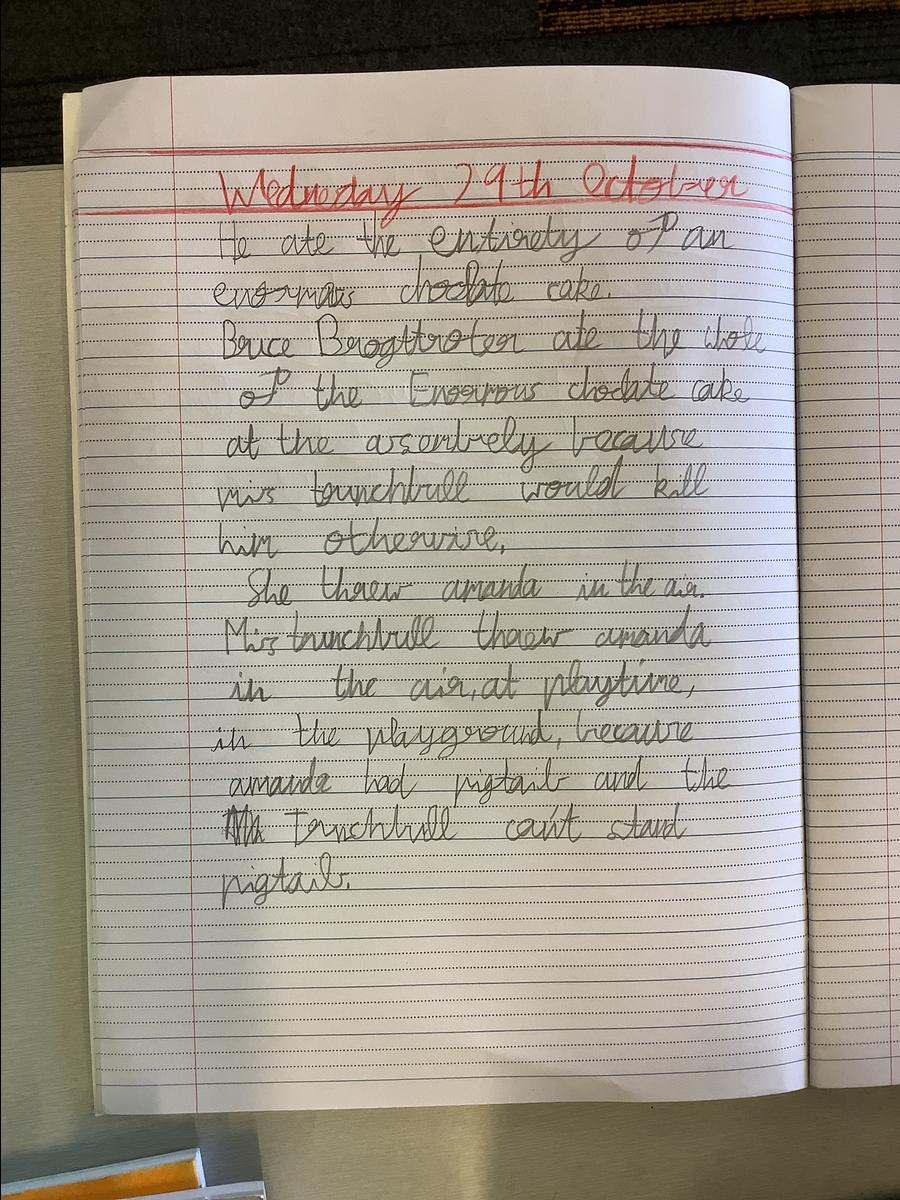 Wednesday 29th October
He ate the entirety of an
enormous choclate cake.
Bruce Brogttroter ate the whole
of the Enormous choclate cake
at the assembely because
miss trunchbull would kill
him otherwise,
She threw amanda in the air.
Miss trunchbull threw amanda
in the air, at playtime,
in the playground, because
amanda had pigtails and the
Trunchbull can't stand
pigtails.